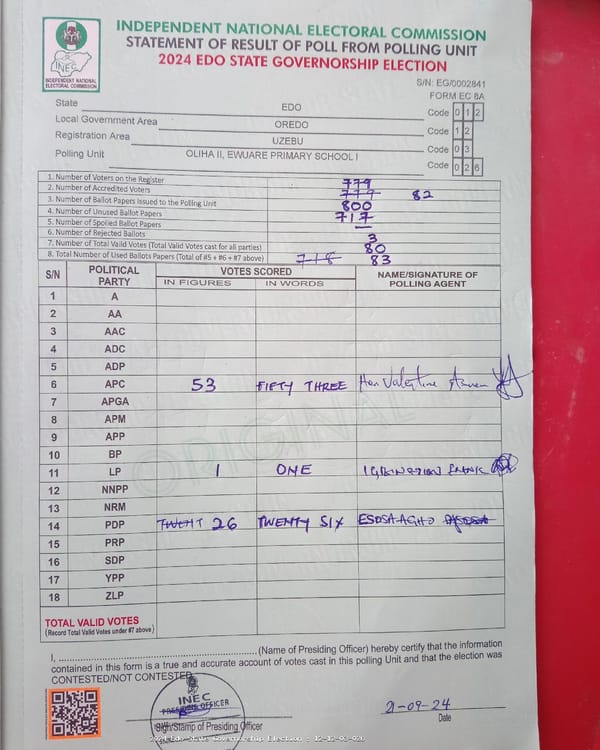 INDEPENDENT NATIONAL ELECTORAL COMMISSION
STATEMENT OF RESULT OF POLL FROM POLLING UNIT
2024 EDO STATE GOVERNORSHIP ELECTION
INEC
INDEPENDENT NATIONAL
ELECTORAL COMMISSION
S/N: EG/0002841
FORM EC 8A
State EDO Code 0 1 2
Local Government Area OREDO Code 1 2
Registration Area UZEBU Code 0 3
Polling Unit OLIHA II, EWUARE PRIMARY SCHOOL I Code 0 2 6
1. Number of Voters on the Register 779
2. Number of Accredited Voters 779 82
3. Number of Ballot Papers issued to the Polling Unit 800
4. Number of Unused Ballot Papers 717
5. Number of Spoiled Ballot Papers —
6. Number of Rejected Ballots 3
7. Number of Total Valid Votes (Total Valid Votes cast for all parties) 80
8. Total Number of Used Ballots Papers (Total of #5 + #6 + #7 above) 718 83
S/N POLITICAL PARTY VOTES SCORED NAME/SIGNATURE OF POLLING AGENT
IN FIGURES IN WORDS
1 A
2 AA
3 AAC
4 ADC
5 ADP
6 APC 53 FIFTY THREE Hon Valentine
7 APGA
8 APM
9 APP
10 BP
11 LP 1 ONE
12 NNPP
13 NRM
14 PDP TWENT 26 TWENTY SIX
15 PRP
16 SDP
17 YPP
18 ZLP
ORIGINAL
TOTAL VALID VOTES
(Record Total Valid Votes under #7 above)
I, ..........(Name of Presiding Officer) hereby certify that the information
contained in this form is a true and accurate account of votes cast in this polling Unit and that the election was
CONTESTED/NOT CONTESTED
INEC
PRESIDING OFFICER
Sign/Stamp of Presiding Officer
21-09-24
Date
2024 Edo State Governorship Election : 12-12-03-026